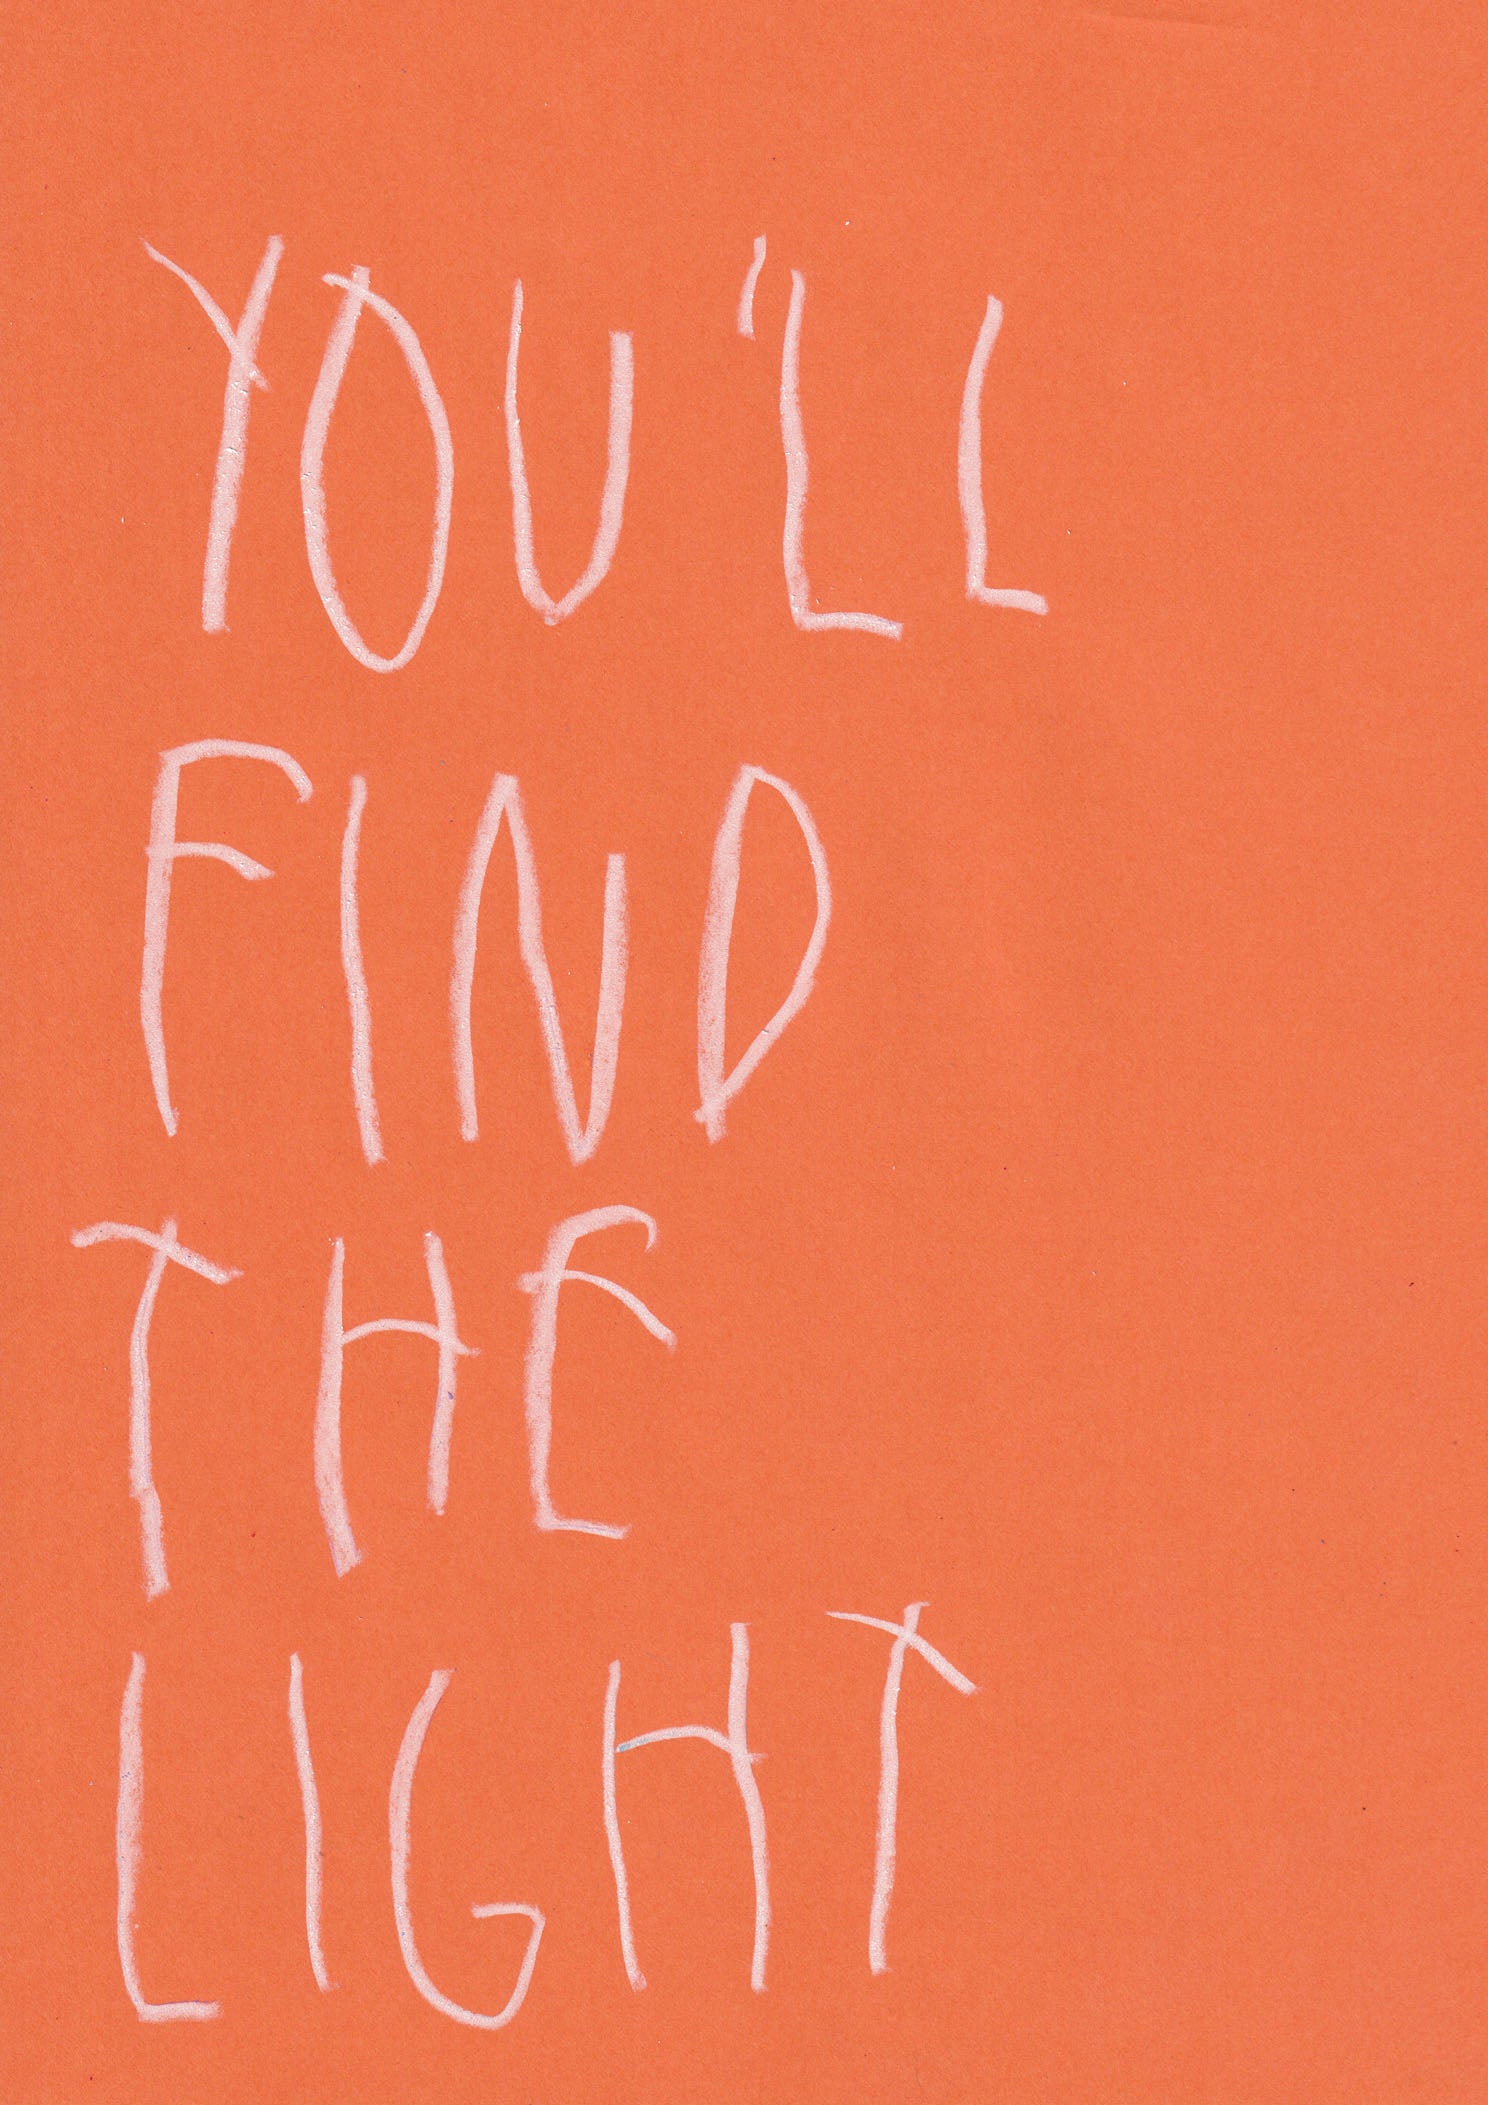 YOU'LL
FIND
THE
LIGHT